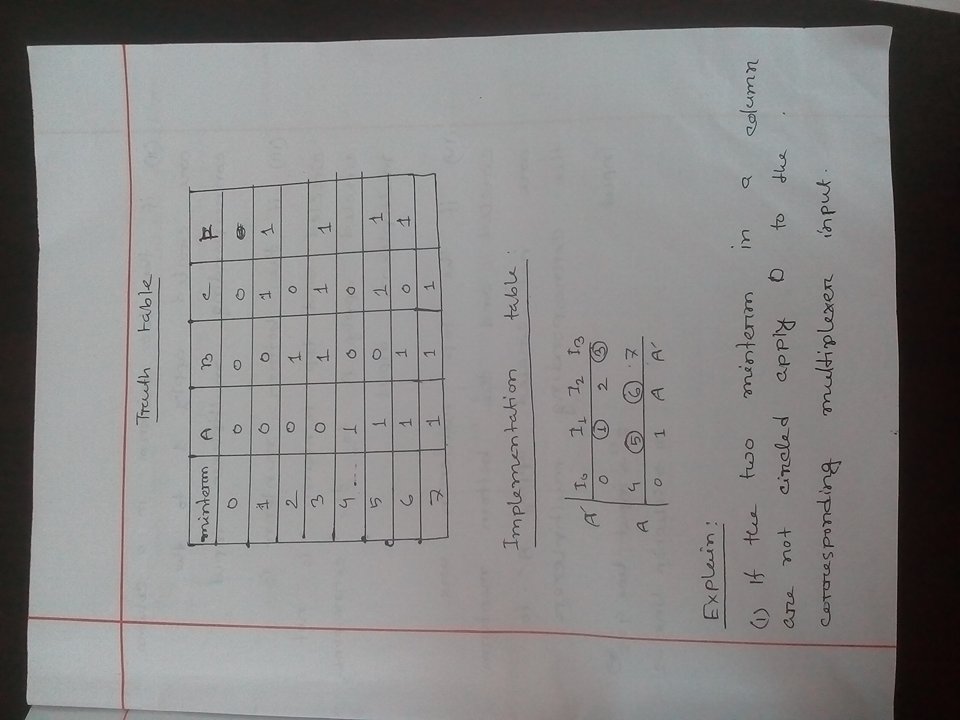 Truth table
minterm A B C F
0 0 0 0 0
1 0 0 1 1
2 0 1 0
3 0 1 1 1
4 1 0 0
5 1 0 1 1
6 1 1 0 1
7 1 1 1
Implementation table:
I0 I1 I2 I3
A' 0 1 2 3
A 4 5 6 7
0 1 A A'
Explain:
(1) If the two minterm in a column
are not circled apply 0 to the
corresponding multiplexer input.